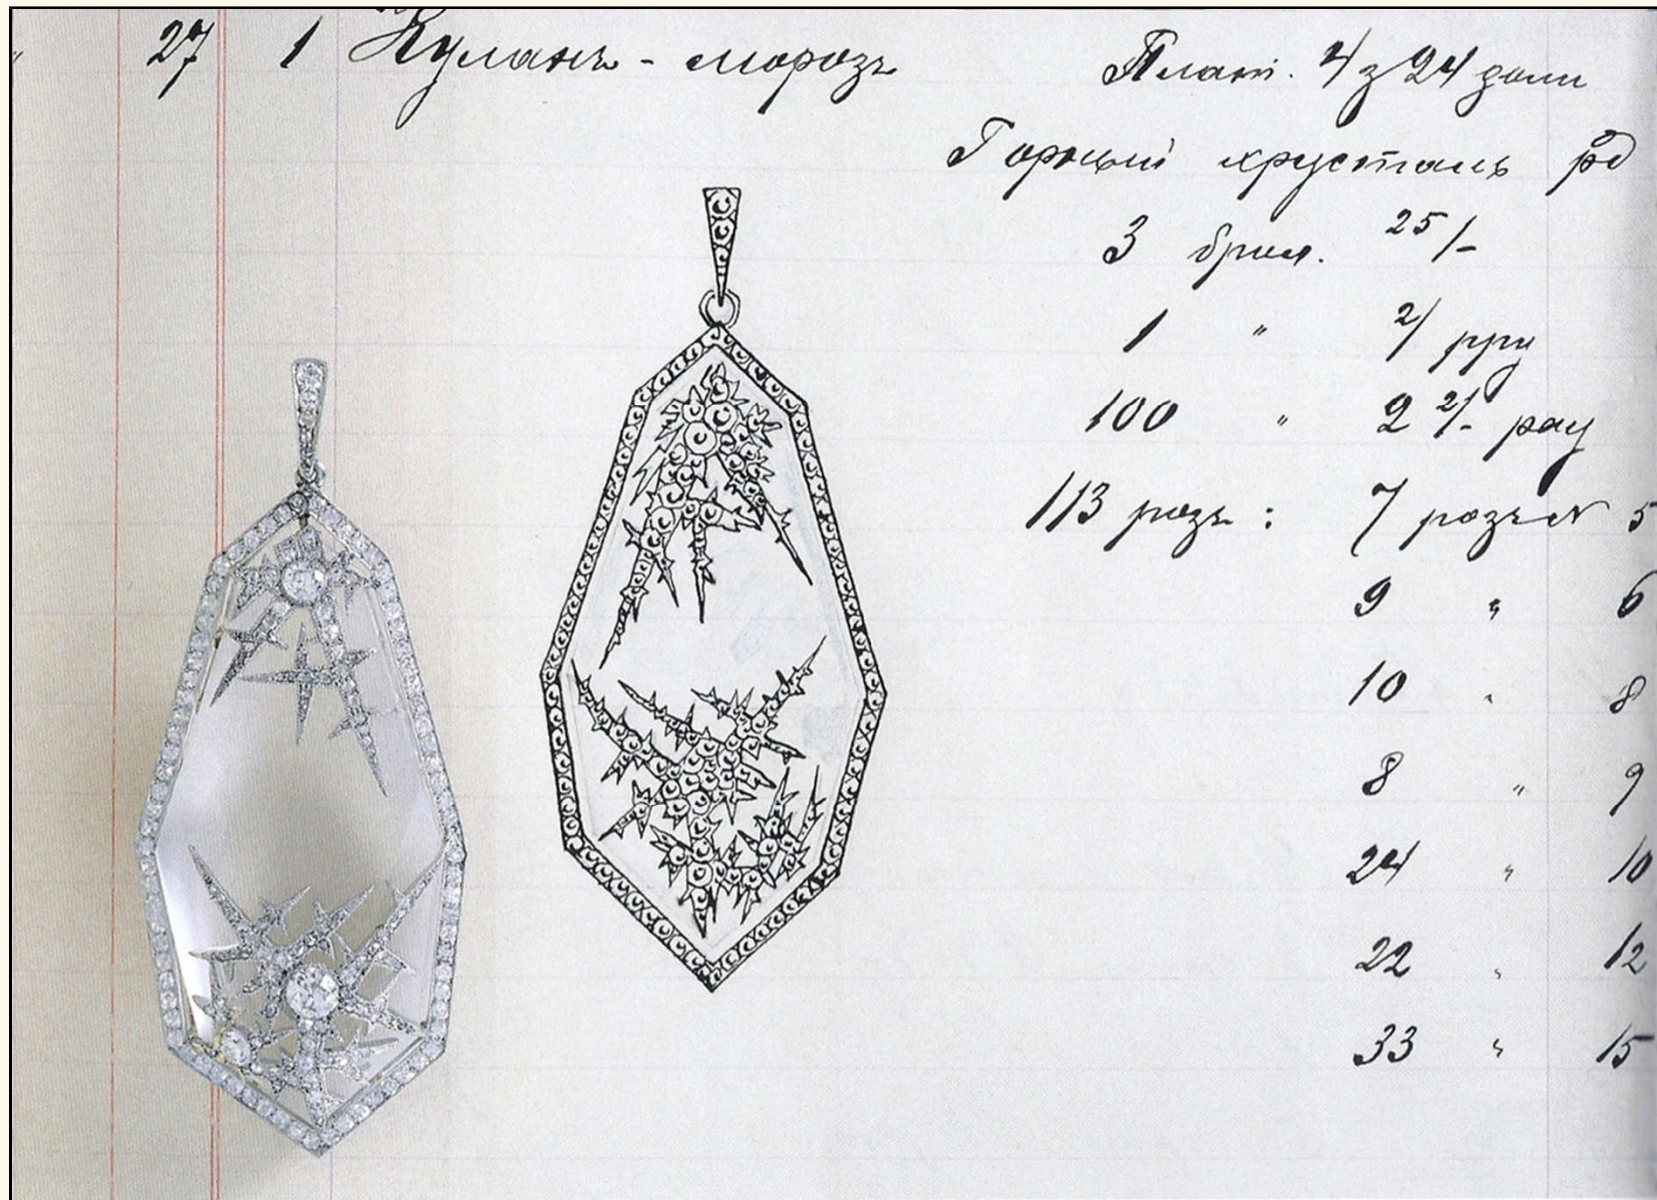 " 27 1 Кулонъ - морозъ Плат. 4 з 24 доли
Горный хрусталь
3 брил. 25/-
1 " 2/
100 " 2 2/-
113 розъ : 7 розъ № 5
9 " 6
10 " 8
8 " 9
24 " 10
22 " 12
33 " 15